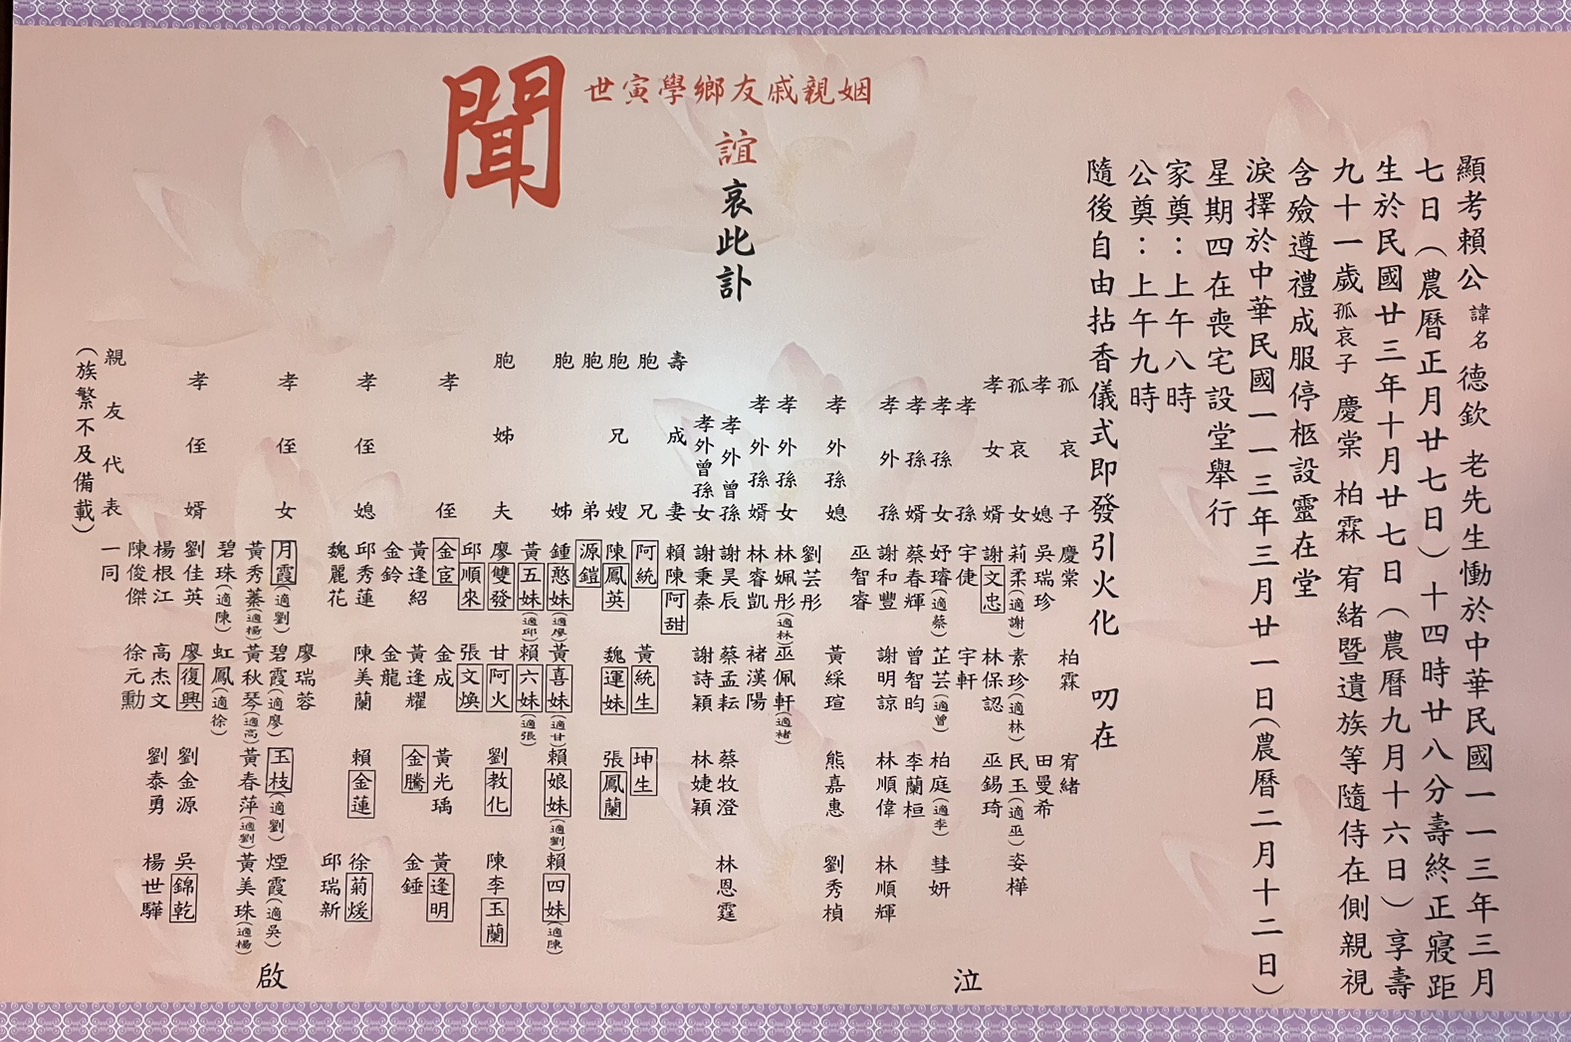 顯考賴公諱名德欽 老先生慟於中華民國一一三年三月
七日(農曆正月廿七日)十四時廿八分壽終正寢距
生於民國廿三年十月廿七日(農曆九月十六日)享壽
九十一歲孤哀子 慶棠 柏霖 宥緒暨遺族等隨侍在側親視
含殮遵禮成服停柩設靈在堂
淚擇於中華民國一一三年三月廿一日(農曆二月十二日)
星期四在喪宅設堂舉行
家奠：上午八時
公奠：上午九時
隨後自由拈香儀式即發引火化 叨在
姻親戚友鄉學寅世
誼哀此訃
聞
孤哀子 慶棠 柏霖 宥緒
孝媳 吳瑞珍 田曼希
孤哀女 莉柔(適謝) 素珍(適林) 民玉(適巫) 姿樺
孝女婿 謝文忠 林保認 巫錫琦
孝孫 宇倢 宇軒
孝孫女 妤瑃(適蔡) 芷芸(適曾) 柏庭(適李) 彗妍
孝孫婿 蔡春輝 曾智昀 李蘭桓
孝外孫 謝和豐 謝明諒 林順偉 林順輝
巫智睿
孝外孫媳 劉芸彤 黃綵瑄 熊嘉惠 劉秀楨
孝外孫女 林姵彤(適林) 巫佩軒(適褚)
孝外孫婿 林睿凱 褚漢陽
孝外曾孫 謝昊辰 蔡孟耘 蔡牧澄 林恩霆
孝外曾孫女 謝秉秦 謝詩穎 林婕穎
壽成妻 賴陳阿甜
胞兄 阿統 黃統生 坤生
胞兄嫂 陳鳳英 魏運妹 張鳳蘭
胞弟 源鎧
胞姊 鍾憨妹(適廖) 黃喜妹(適甘) 賴娘妹(適劉) 賴四妹(適陳)
黃五妹(適邱) 賴六妹(適張)
胞姊夫 廖雙發 甘阿火 劉教化 陳李玉蘭
邱順來 張文煥
孝侄 金宦 金成 黃光瑀 黃逢明
黃逢紹 黃逢耀 金騰 金錘
金鈴 金龍
孝侄媳 邱秀蓮 陳美蘭 賴金蓮 徐菊煖
魏麗花 邱瑞新
廖瑞蓉
孝侄女 月霞(適劉) 碧霞(適廖) 玉枝(適劉) 煙霞(適吳)
黃秀蓁(適楊) 黃秋琴(適高) 黃春萍(適劉) 黃美珠(適楊)
碧珠(適陳) 虹鳳(適徐)
孝侄婿 劉佳英 廖復興 劉金源 吳錦乾
楊根江 高杰文 劉泰勇 楊世驊
陳俊傑 徐元勳
親友代表 一同
(族繁不及備載)
泣
啟